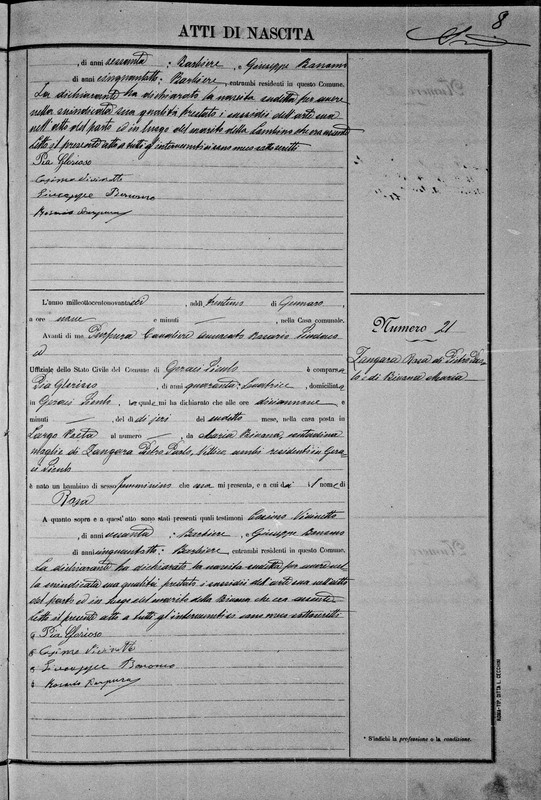 8
ATTI DI NASCITA
, di anni sessanta : Barbiere, e Giuseppe
di anni cinquantotto : Barbiere, entrambi residenti in questo Comune.
La dichiarante ha dichiarato la nascita suddetta per avere
nella suindicata sua qualità prestato i sussidii dell'arte sua
nell'atto del parto ed in luogo del marito della
Letto il presente atto a tutti gl'intervenuti si sono meco sottoscritti
Pia Glorioso
Cosimo
Giuseppe
Rosario Purpura
L'anno milleottocentonovantasei, addì trentuno di Gennaro,
a ore nove e minuti —, nella Casa comunale.
Avanti di me Purpura Cavaliere Rosario Sindaco
ed
Ufficiale dello Stato Civile del Comune di Geraci Siculo è comparsa
Pia Glorioso, di anni quaranta : Levatrice, domiciliata
in Geraci Siculo, la quale mi ha dichiarato che alle ore diciannove e
minuti —, del dì di jeri del suddetto mese, nella casa posta in
Largo al numero —, da Maria contadina
moglie di Zangara Pietro Paolo, Villico ambi residenti in Gera-
ci Siculo
è nato un bambino di sesso femminino che essa mi presenta, e a cui dà il nome di
Rosa
A quanto sopra e a quest'atto sono stati presenti quali testimoni Cosimo
di anni sessanta : Barbiere, e Giuseppe
di anni cinquantotto : Barbiere, entrambi residenti in questo Comune.
La dichiarante ha dichiarato la nascita suddetta per avere nel-
la suindicata sua qualità prestato i sussidii dell'arte sua nell'atto
del parto ed in luogo del marito della
Letto il presente atto a tutti gl'intervenuti si sono meco sottoscritti
Pia Glorioso
Cosimo
Giuseppe
Rosario Purpura
Numero 21
Zangara Rosa di Pietro Pao-
lo e di Maria
* S'indichi la professione o la condizione.
ROMA-TIP. DITTA L. CECCHINI